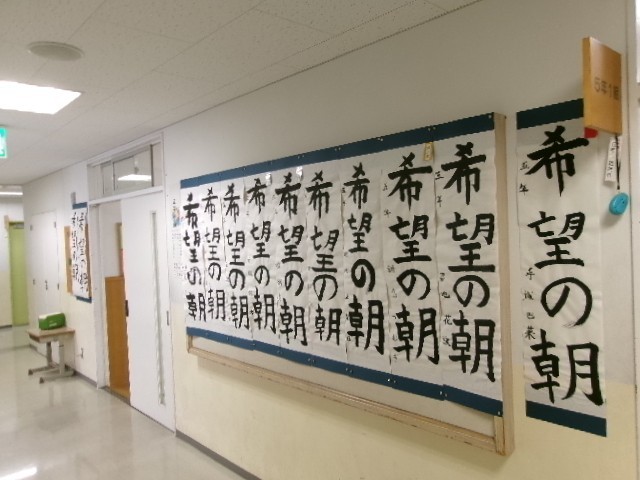 5年1組
希望の朝
五年
希望の朝
五年
希望の朝
希望の朝
希望の朝
希望の朝
希望の朝
希望の朝
希望の朝
希望の朝
希望の朝